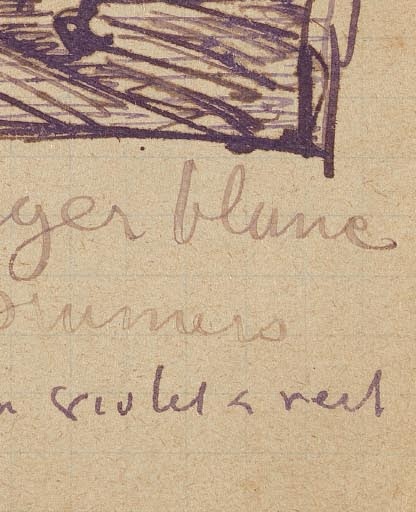 yer blanc
runners
n violet < vert